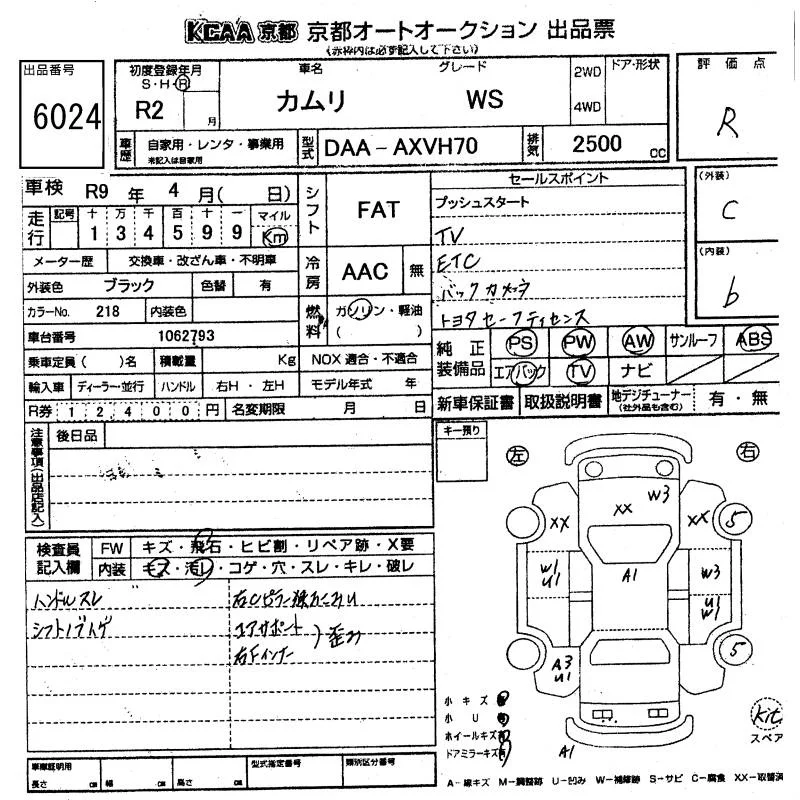 KCAA 京都 京都オートオークション 出品票
(赤枠内は必ず記入して下さい)
出品番号
6024
初度登録年月
S・H・R
R2
月
車名
カムリ
グレード
WS
2WD
4WD
ドア・形状
評価点
R
車歴
自家用・レンタ・事業用
未記入は自家用
型式
DAA-AXVH70
排気
2500
cc
車検 R9 年 4 月( 日)
走行
記号 十 万 千 百 十 一 マイル
1 3 4 5 9 9 Km
メーター歴 交換車・改ざん車・不明車
外装色 ブラック 色替 有
カラーNo. 218 内装色
車台番号 1062793
乗車定員( )名 積載量 Kg
輸入車 ディーラー・並行 ハンドル 右H・左H
R券 12,400円 名変期限 月 日
シフト
FAT
冷房
AAC 無
燃料
ガソリン・軽油
( )
NOX 適合・不適合
モデル年式 年
セールスポイント
プッシュスタート
TV
ETC
バックカメラ
トヨタセーフティセンス
(外装)
C
(内装)
b
純正装備品
PS PW AW サンルーフ ABS
エアバック TV ナビ
新車保証書 取扱説明書 地デジチューナー
(社外品も含む)
有・無
注意事項(出品店記入)
後日品
キー預り
左
右
検査員記入欄
FW キズ・飛石・ヒビ割・リペア跡・X要
内装 キズ・汚レ・コゲ・穴・スレ・キレ・破レ
ハンドルスレ
シフトノブハゲ
右Cピラー
コアサポート
右Fインナー
歪み
XX
W3
XX
XX
5
W1
U1
A1
W3
U1
W1
A3
U1
5
小キズ
小U
ホイールキズ
ドアミラーキズ
A1
kit
スペア
車庫証明用
長さ cm 幅 cm 高さ cm
型式指定番号
類別区分番号
A-線キズ M-調整跡 U-凹み W-補修跡 S-サビ C-腐食 XX-取替済